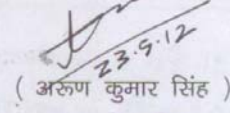 23.5.12
( अरूण कुमार सिंह )